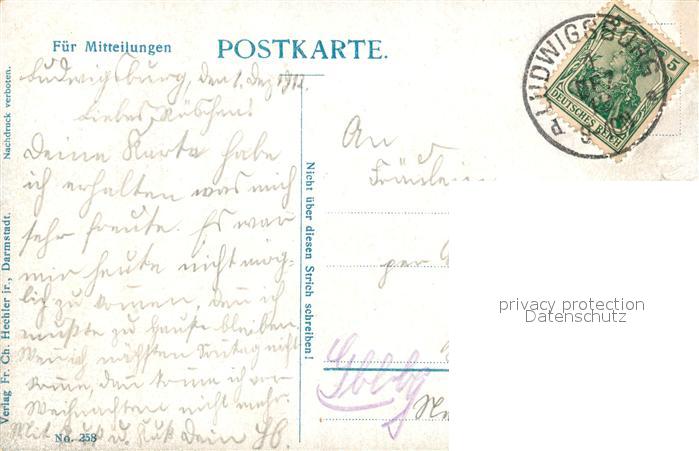 Für Mitteilungen
POSTKARTE.
Ludwigsburg, den 1. Dez. 1912.
Liebes Röschen!
Deine Karte habe
ich erhalten was mich
sehr freute. Es war
mir heute nicht mög-
lich zu kommen, denn ich
mußte zu Hause bleiben.
Wenn ich nächsten Sonntag nicht
komme, dann komme ich vor
Weihnachten nicht mehr.
Mit Gruß u. Kuß Dein
No. 258
Nachdruck verboten.
Verlag Fr. Ch. Hechler jr., Darmstadt.
Nicht über diesen Strich schreiben!
An
Fräulein
per
LUDWIGSBURG
DEUTSCHES REICH
5
privacy protection
Datenschutz